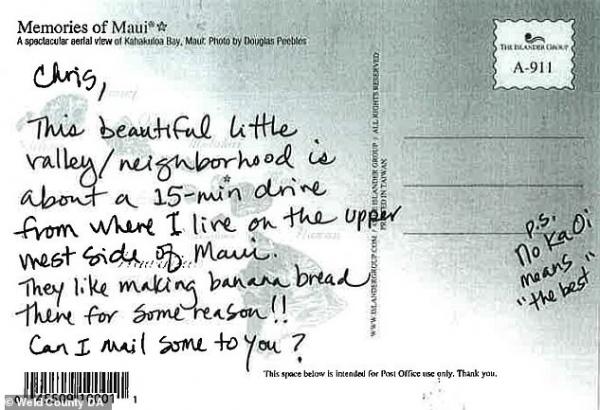 Memories of Maui®☆
A spectacular aerial view of Kahakuloa Bay, Maui. Photo by Douglas Peebles
THE ISLANDER GROUP
A-911
Chris,
This beautiful little
valley/neighborhood is
about a 15-min drive
from where I live on the upper
west side of Maui.
They like making banana bread
there for some reason!!
Can I mail some to you?
WWW.ISLANDERGROUP.COM / © THE ISLANDER GROUP / ALL RIGHTS RESERVED
PRINTED IN TAIWAN
p.s.
No Ka Oi
means
"the best"
This space below is intended for Post Office use only. Thank you.
1
© Weld County DA